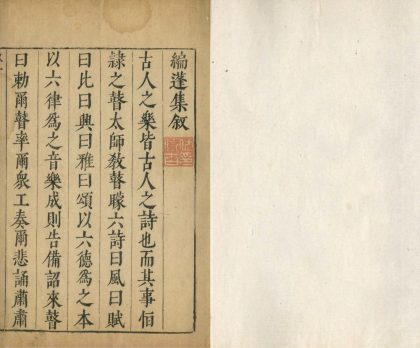 編蓬集叙
古人之樂皆古人之詩也而其事恒
隸之瞽太師敎瞽矇六詩曰風曰賦
曰比曰興曰雅曰頌以六德爲之本
以六律爲之音樂成則告備詔來瞽
曰勅爾瞽率爾衆工奏爾悲誦肅肅